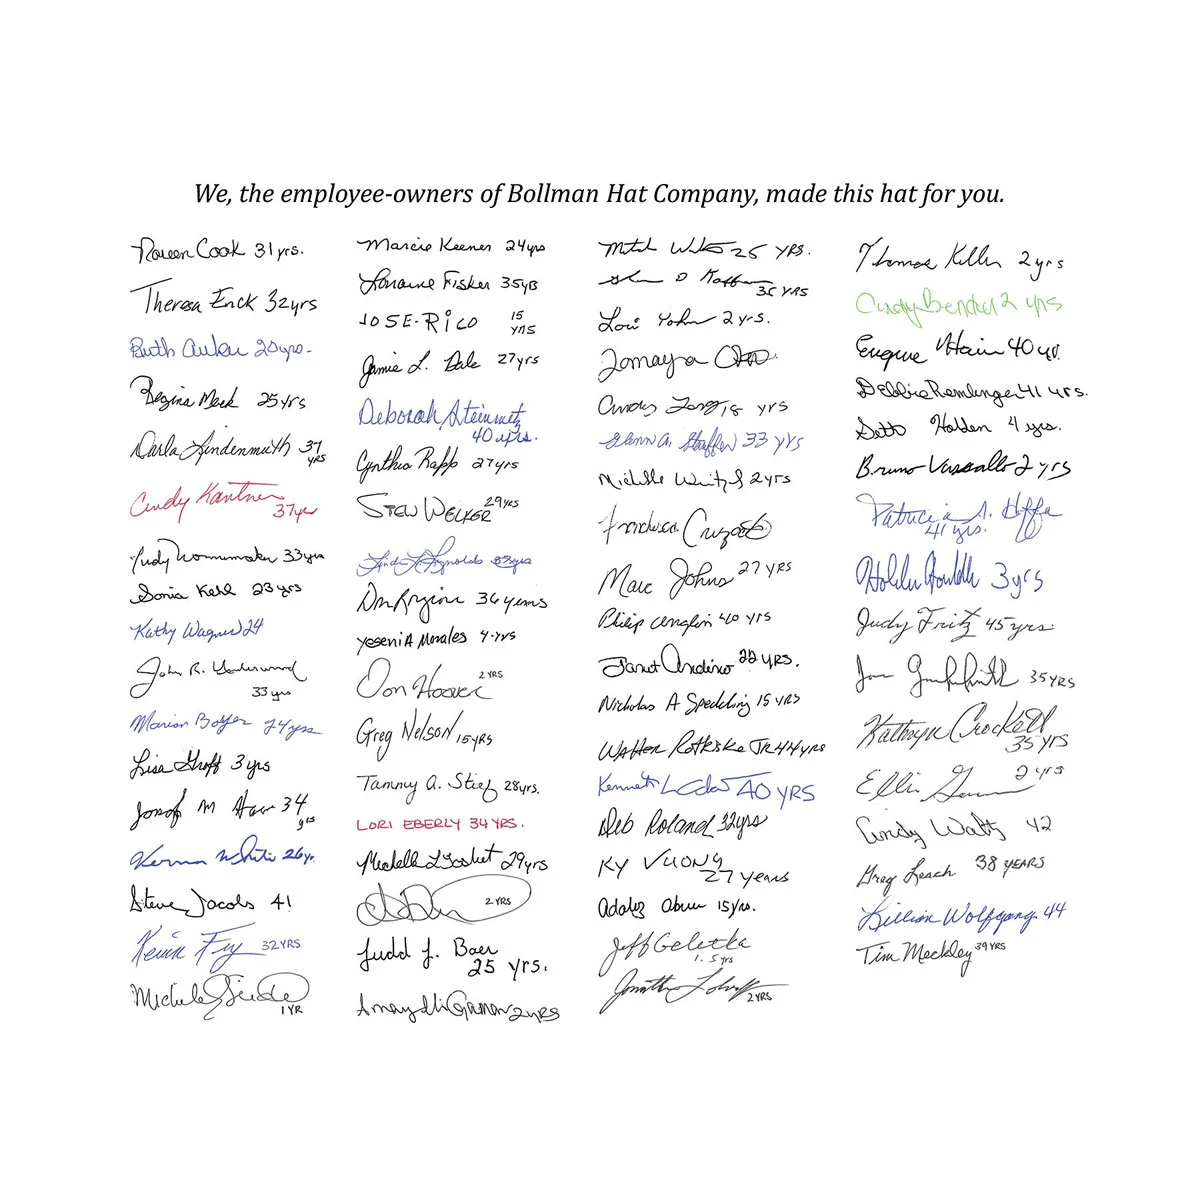 We, the employee-owners of Bollman Hat Company, made this hat for you.
Raeen Cook 31 yrs.
Theresa Enck 32 yrs
Ruth Auker 20 yrs.
Regina Meck 25 yrs
Darla Lindenmuth 37
YRS
Cindy Kantner
37 yrs
Judy 33 yrs
Sonia Kehl 23 yrs
Kathy Wagner 24
John R. Underwood
33 yrs
Marian Boyer 24 yrs
Lisa Groff 3 yrs
Josef M 34
yrs
White 26 yr.
Steve Jacobs 41
Kevin Fry 32 YRS
Michele
1 YR
Marcie Keener 24 yrs
Lorraine Fisher 35 yrs
JOSE-RICO 15
yrs
Jamie L. Dale 27 yrs
Deborah Steinmetz
40 yrs.
Cynthia Rapp 27 yrs
STEW WELKER 29 yrs
36 years
Yesenia Morales 4 yrs
Don Hoover 2 YRS
Greg Nelson 15 YRS
Tammy A. Stief 28 yrs.
LORI EBERLY 34 YRS.
Michelle 29 yrs
2 YRS
Judd J. Baer
25 yrs.
2 YRS
25 YRS.
35 YRS
Lori Yohn 2 yrs.
Tomayra
Cindy 18 yrs
Glenn A. Stauffer 33 yrs
Michelle 2 yrs
Marc Johns 27 YRS
Philip 40 yrs
Janet Andino 22 YRS.
Nicholas A Speckling 15 YRS
Walter Rothiske Jr 44 yrs
Kenneth 40 YRS
Deb Roland 32 yrs
KY VUONG
27 years
15 yrs.
Jeff Geletka
1.5 yrs
2 YRS
Thomas Keller 2 yrs
Cindy Bender 2 yrs
Eugene Hain 40 yr.
Debbie Remlinger 41 yrs.
Seth Holden 4 yrs.
Bruno Vassallo 2 yrs
Patricia A. Hoffa
41 yrs.
3 yrs
Judy Fritz 45 yrs.
35 YRS
Kathryn Crockett
35 YRS
Ellis 2 yrs
Cindy Waltz 42
Greg Leach 38 YEARS
Lillian Wolfgang 44
Tim Meckley 39 YRS